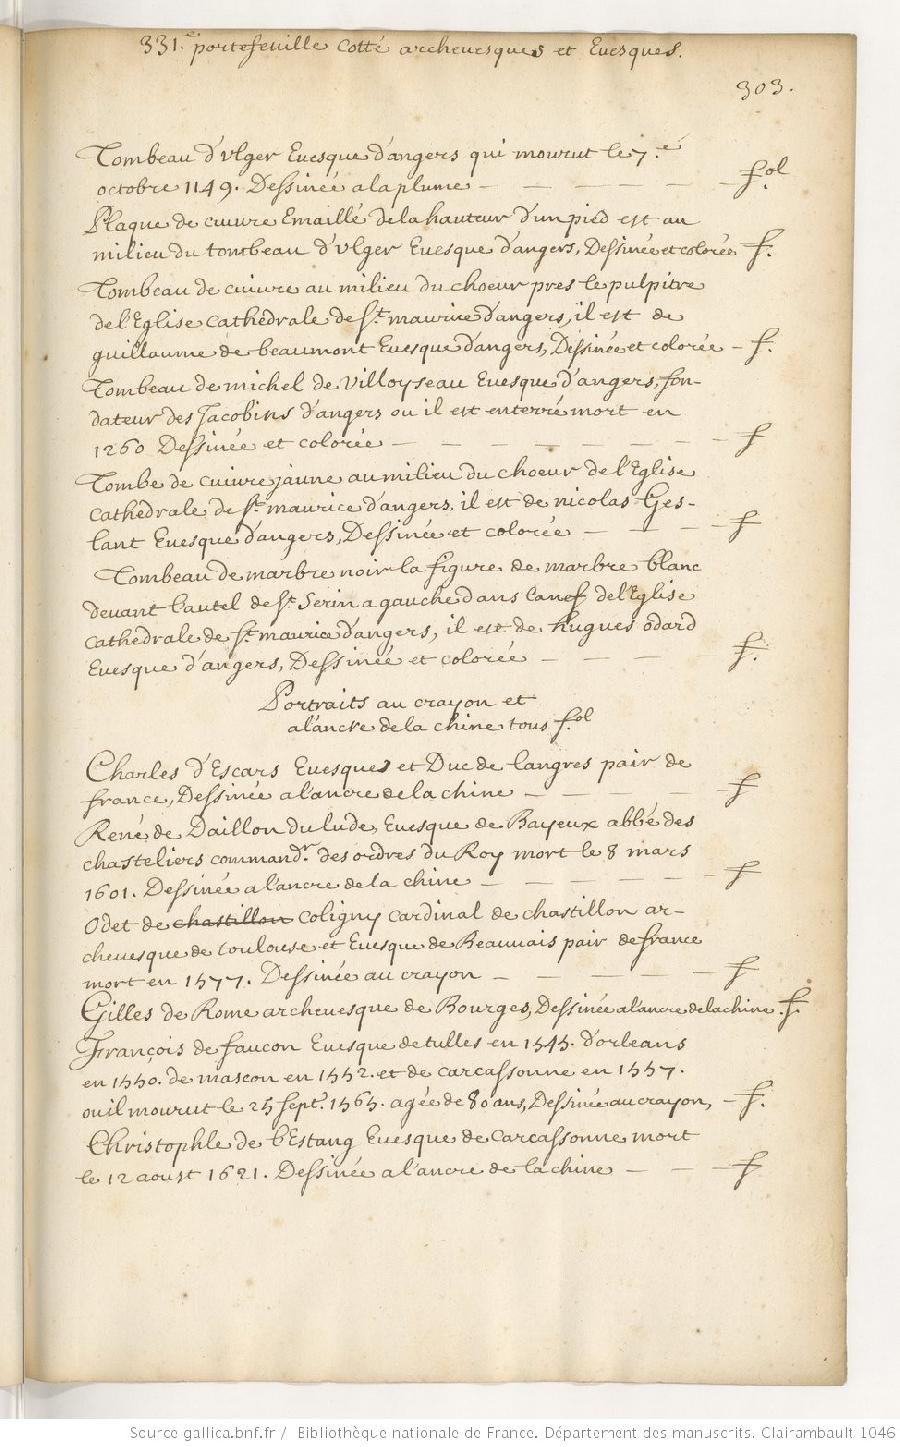 331.e portefeuille cotté archeuesques et Euesques.
303.
Tombeau d'Vlger Euesque d'angers qui mourut le 7.e
octobre 1149. Dessinée a la plume — — — — — fol.
Plaque de cuiure Emaillé de la hauteur d'un pied est au
milieu du tombeau d'Vlger Euesque d'angers, Dessinée et colorée. f.
Tombeau de cuiure au milieu du choeur pres le pulpitre
de l'Eglise cathedrale de St. maurice d'angers, il est de
guillaume de beaumont Euesque d'angers, Dessinée et colorée — f.
Tombeau de michel de Villoyseau Euesque d'angers, fon-
dateur des Jacobins d'angers ou il est enterré mort en
1260 Dessinée et colorée — — — — — — — f
Tombe de cuiure jaune au milieu du choeur de l'Eglise
cathedrale de St. maurice d'angers. il est de nicolas Ges-
lant Euesque d'angers, Dessinée et colorée — — — f
Tombeau de marbre noir la figure de marbre blanc
deuant l'autel de St. Serin a gauche dans la nef de l'Eglise
cathedrale de St. maurice d'angers, il est de hugues odard
Euesque d'angers, Dessinée et colorée — — — — f.
Portraits au crayon et
a l'ancre de la chine tous fol.
Charles d'Escars Euesques et Duc de langres pair de
france, Dessinée a l'ancre de la chine — — — — f
René de Daillon du lude, Euesque de Bayeux abbé des
chasteliers command.r des ordres du Roy mort le 8 mars
1601. Dessinée a l'ancre de la chine — — — — — f
Odet de chastillon coligny cardinal de chastillon ar-
cheuesque de toulouse et Euesque de Beauuais pair de france
mort en 1577. Dessinée au crayon — — — — — f
Gilles de Rome archeuesque de Bourges, Dessinée a l'ancre de la chine. f.
François de faucon Euesque de tulles en 1545. d'orleans
en 1550. de mascon en 1552. et de carcassonne en 1557.
ou il mourut le 25 sept.e 1565. agée de 80 ans, Dessinée au crayon, — f.
Christophle de l'Estang Euesque de Carcassonne mort
le 12 aoust 1621. Dessinée a l'ancre de la chine — — — f
Source gallica.bnf.fr / Bibliothèque nationale de France. Département des manuscrits. Clairambault 1046